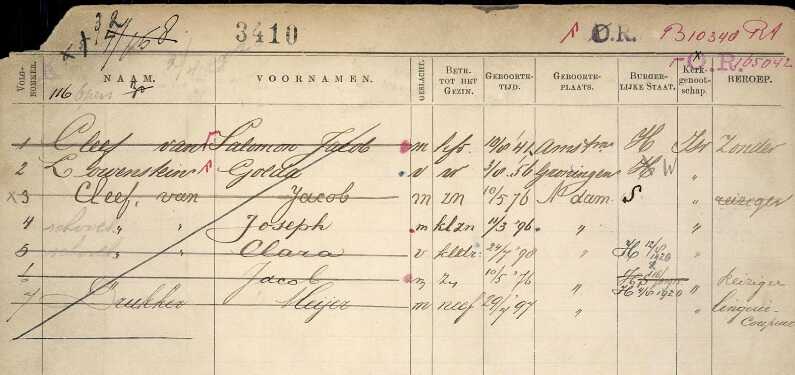 3410
O.R. B10340 RA
O.R. 105042
VOLG-NOMMER. NAAM. VOORNAMEN. GESLACHT. BETR. TOT HET GEZIN. GEBOORTE-TIJD. GEBOORTE-PLAATS. BURGER-LIJKE STAAT. Kerk-genoot-schap. BEROEP.
116
1 Cleef van Salomon Jacob m hfr. 10/10 '42 Amstm H Isr Zonder
2 Lowenstein Golda v v 3/10 56 Groningen H W "
3 Cleef, van Jacob m zn 10/5 76 Ndam S " reiziger
4 " " Joseph m klzn 11/3 '96 " "
5 " " Clara v kldtr. 24/7 '98 " H 12/8 1920 "
Jacob m zn 10/5 '76 " " reiziger
7 Drukker Meijer m neef 29/4 '97 " H 2/6 1920 " lingerie-
Coupeur